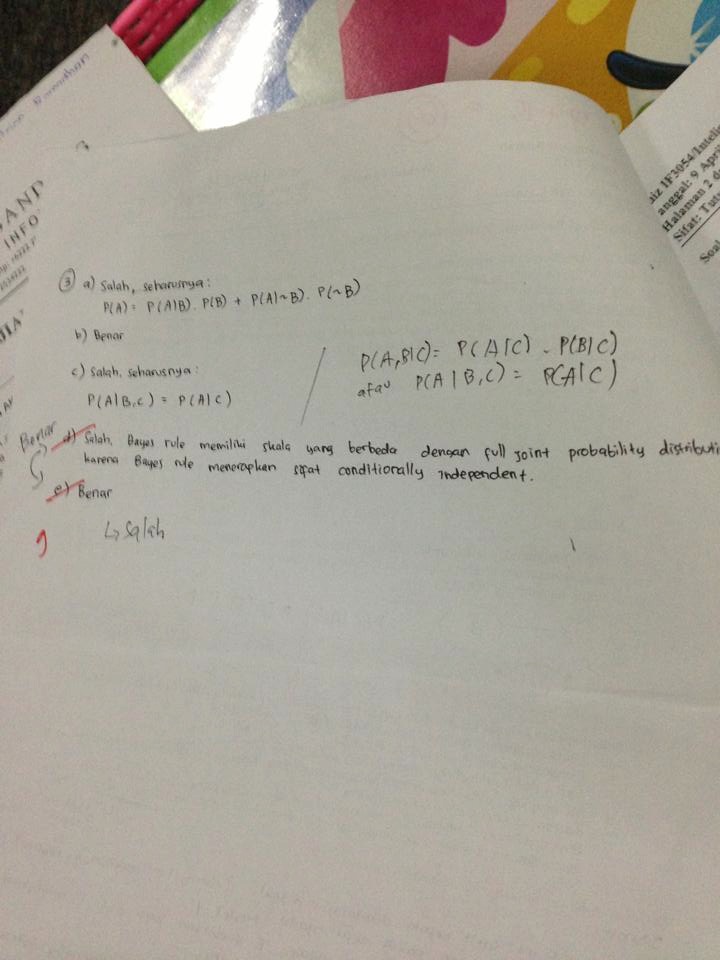 AND
INFO
uiz IF3054/Inteli
anggal: 9 Apri
Halaman 2 d
Sifat: Tut
Soal
3 a) Salah, seharusnya:
P(A) = P(A|B). P(B) + P(A|~B). P(~B)
b) Benar
c) Salah, seharusnya:
P(A|B,C) = P(A|C)
/ P(A,B|C) = P(A|C) . P(B|C)
atau P(A|B,C) = P(A|C)
Benar
d) Salah, Bayes rule memiliki skala yang berbeda dengan full joint probability distributi
karena Bayes rule menerapkan sifat conditionally independent.
e) Benar
↳ Salah
9